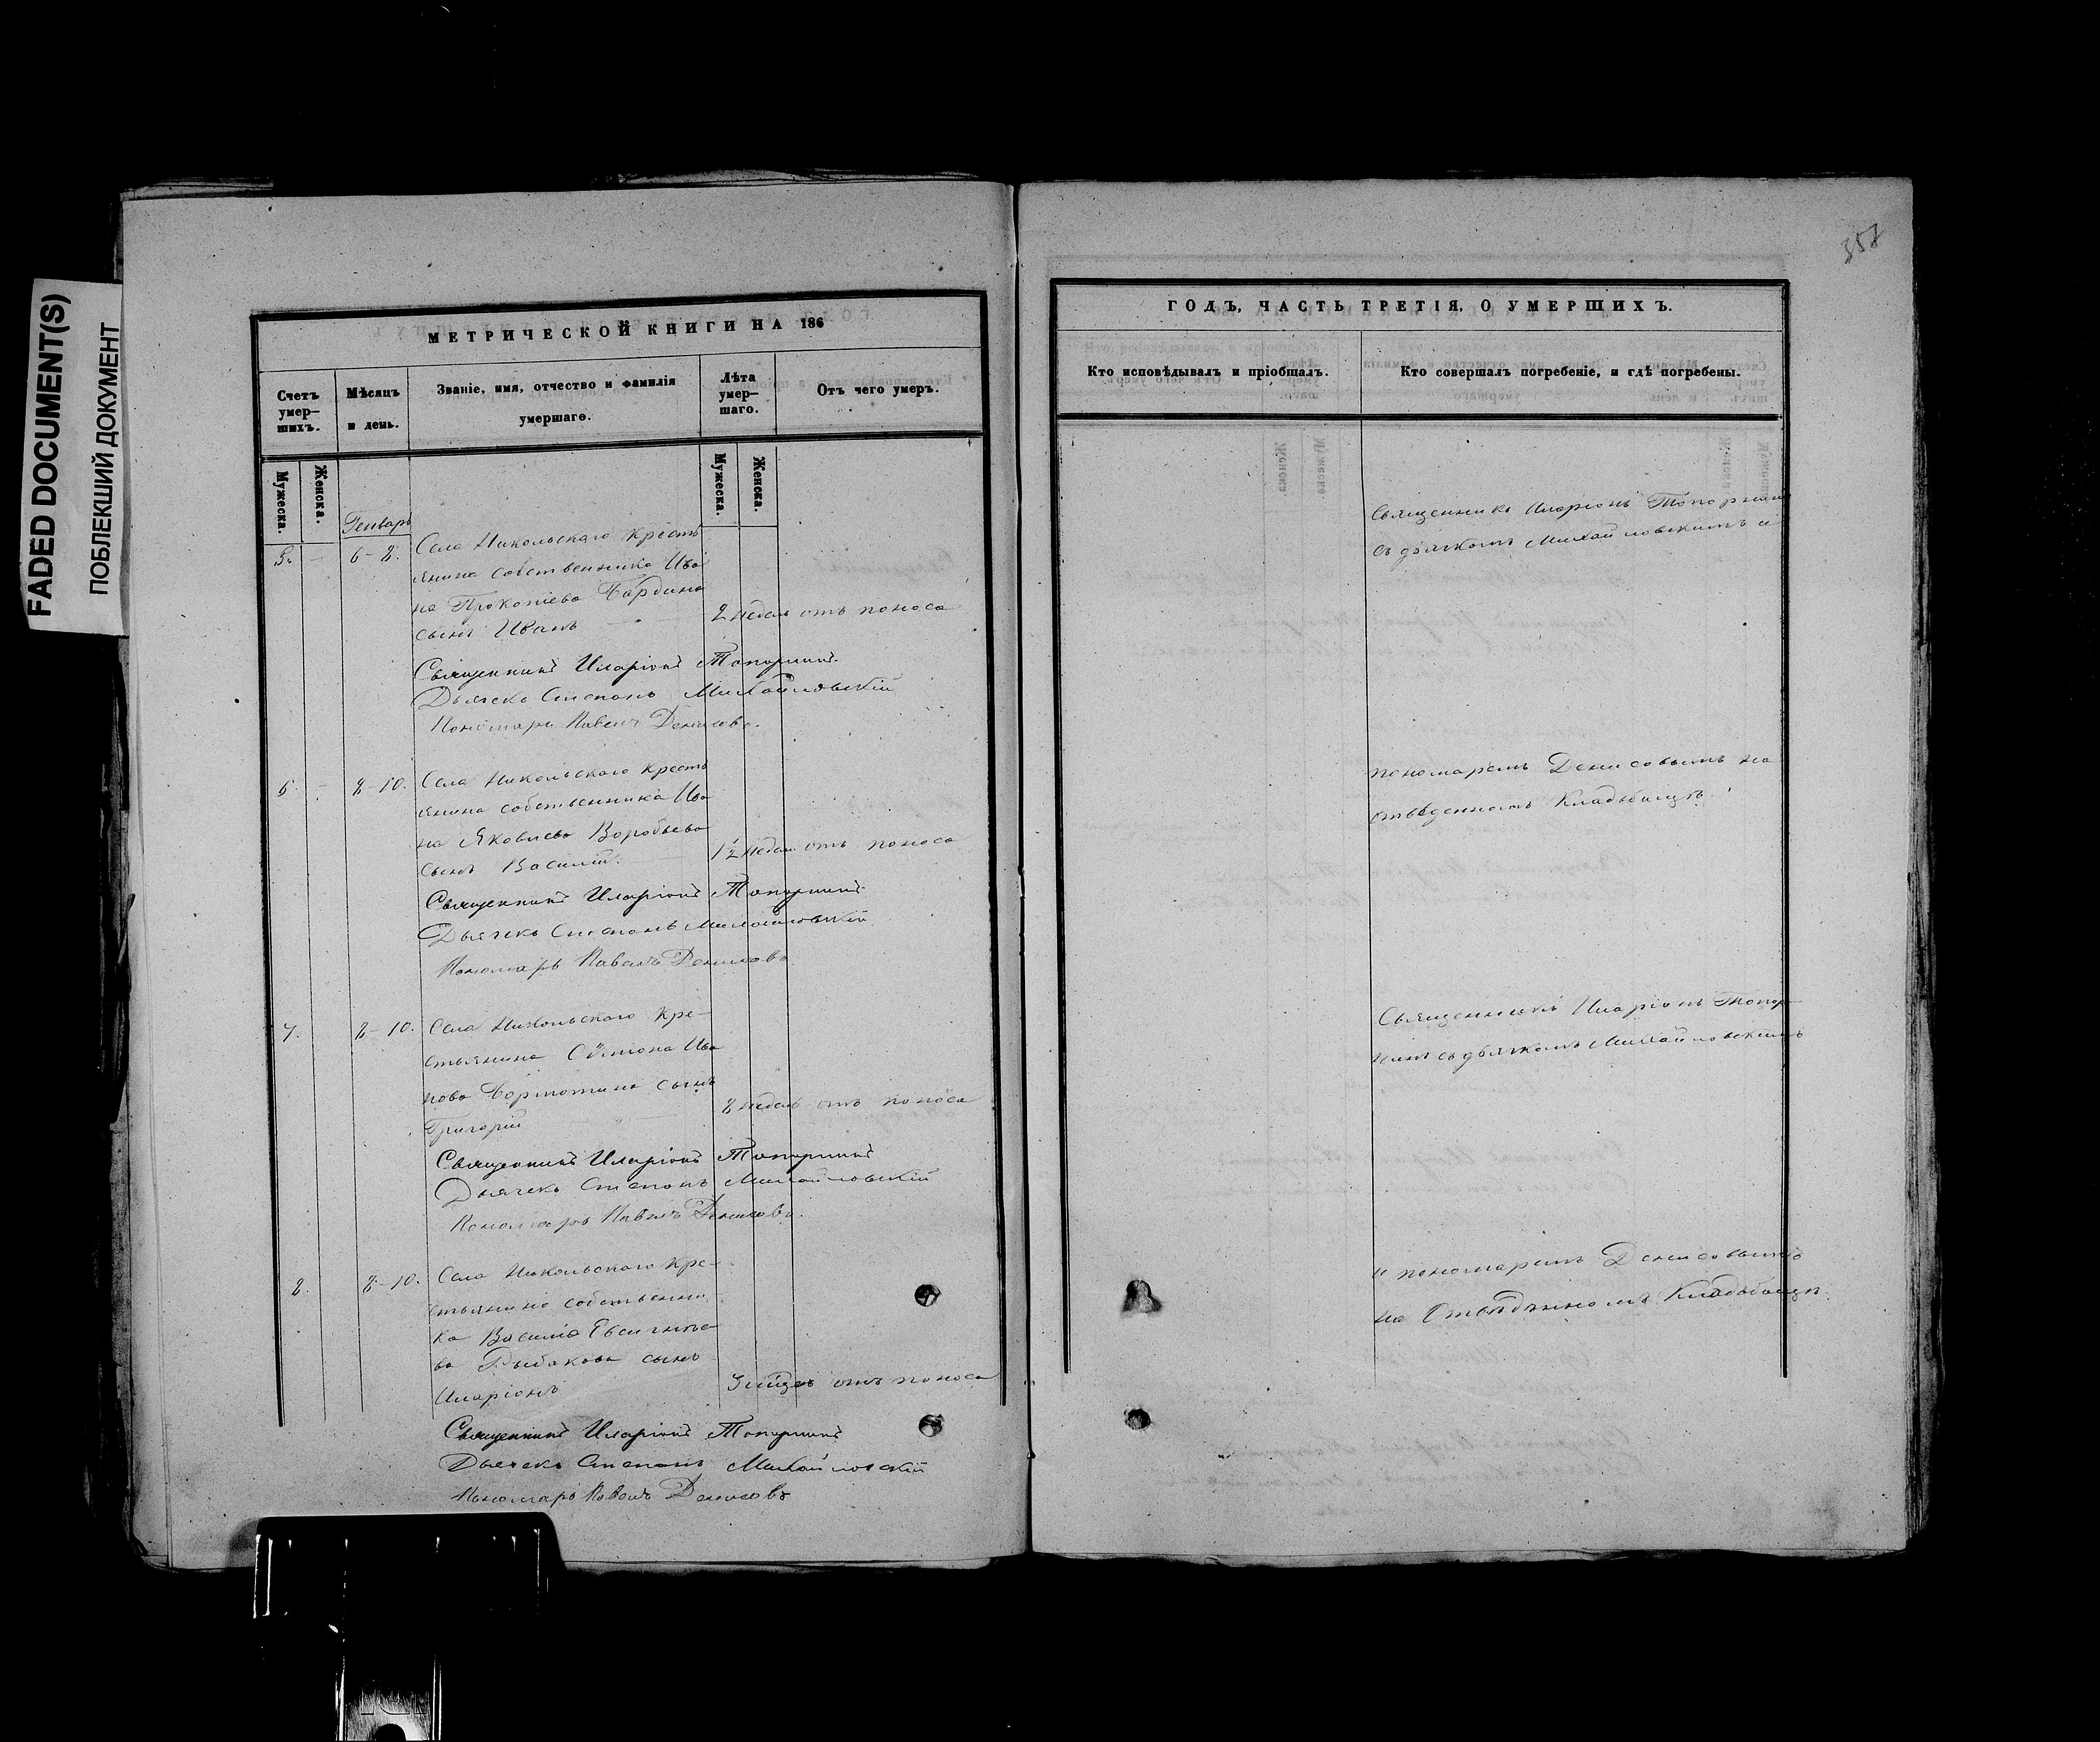 FADED DOCUMENT(S)
ПОБЛЕКШИЙ ДОКУМЕНТ
МЕТРИЧЕСКОЙ КНИГИ НА 186
Счетъ умер-шихъ.
Мѣсяцъ и день.
Званіе, имя, отчество и фамилія
умершаго.
Лѣта умер-шаго.
Отъ чего умеръ.
Мужеска.
Женска.
Мужеска.
Женска.
Генварь
5. – 6-8. Села Никольскаго кресть
янина собственника Ива
на Прокопіева
сынъ Иванъ 2 недель отъ поноса
Священникъ Иларіонъ Топорнинъ
Дьячекъ Стефанъ Михайловскій
Пономарь Павелъ Денисовъ.
6. – 8-10. Села Никольскаго кресть
янина собственника Ива
на Яковлева Воробьева
сынъ Василій. 1½ недели отъ поноса
Священникъ Иларіонъ Топорнинъ
Дьячекъ Стефанъ Михайловскій
Пономарь Павелъ Денисовъ
7. 8-10. Села Никольскаго кре-
стьянина Ива
нова сынъ
Григорій 2 недель отъ поноса
Священникъ Иларіонъ Топорнинъ
Дьячекъ Стефанъ Михайловскій
Пономарь Павелъ Денисовъ.
8 8-10. Села Никольскаго кре-
стьянина собственни
ка Василія Евсигнѣе
ва Рыбакова сынъ
Иларіонъ 3 недель отъ поноса
Священникъ Иларіонъ Топорнинъ
Дьячекъ Стефанъ Михайловскій
Пономарь Павелъ Денисовъ
358
ГОДЪ, ЧАСТЬ ТРЕТІЯ, О УМЕРШИХЪ.
Кто исповѣдывалъ и пріобщалъ.
Кто совершалъ погребеніе, и гдѣ погребены.
Священникъ Иларіонъ Топорнинъ
съ дьячкомъ Михайловскимъ и
пономаремъ Денисовымъ на
отведенномъ кладбищѣ.
Священникъ Иларіонъ Топор-
нинъ съ дьячкомъ Михайловскимъ
и пономаремъ Денисовымъ
на Отведенномъ Кладбищѣ.